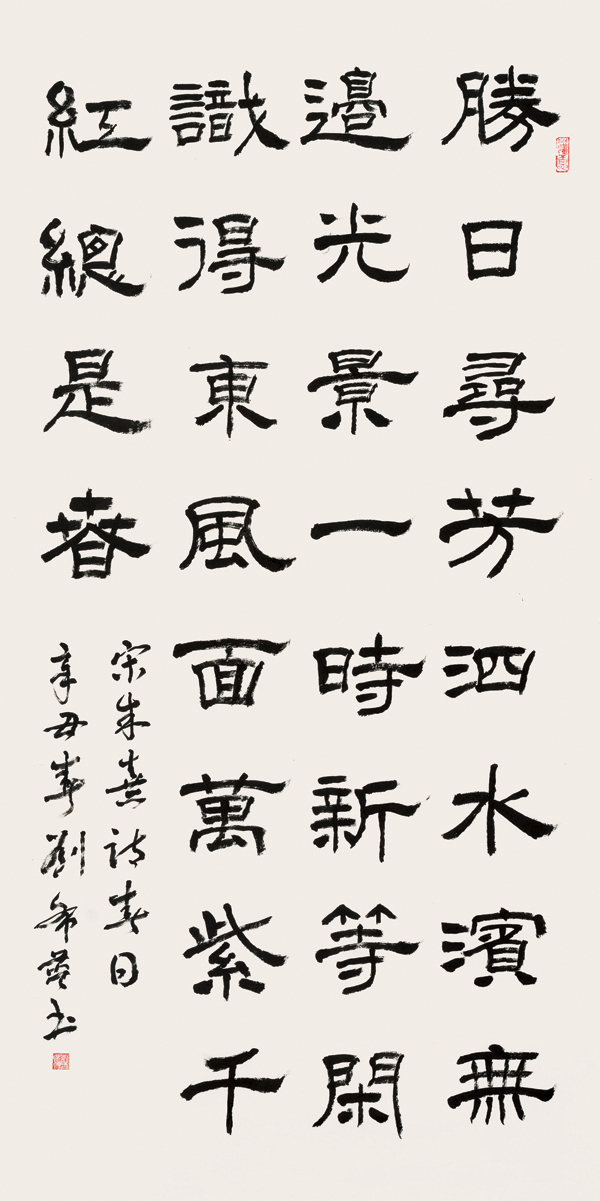 勝日尋芳泗水濱無
邊光景一時新等閑
識得東風面萬紫千
紅總是春
宋朱熹詩春日
辛丑春劉希书